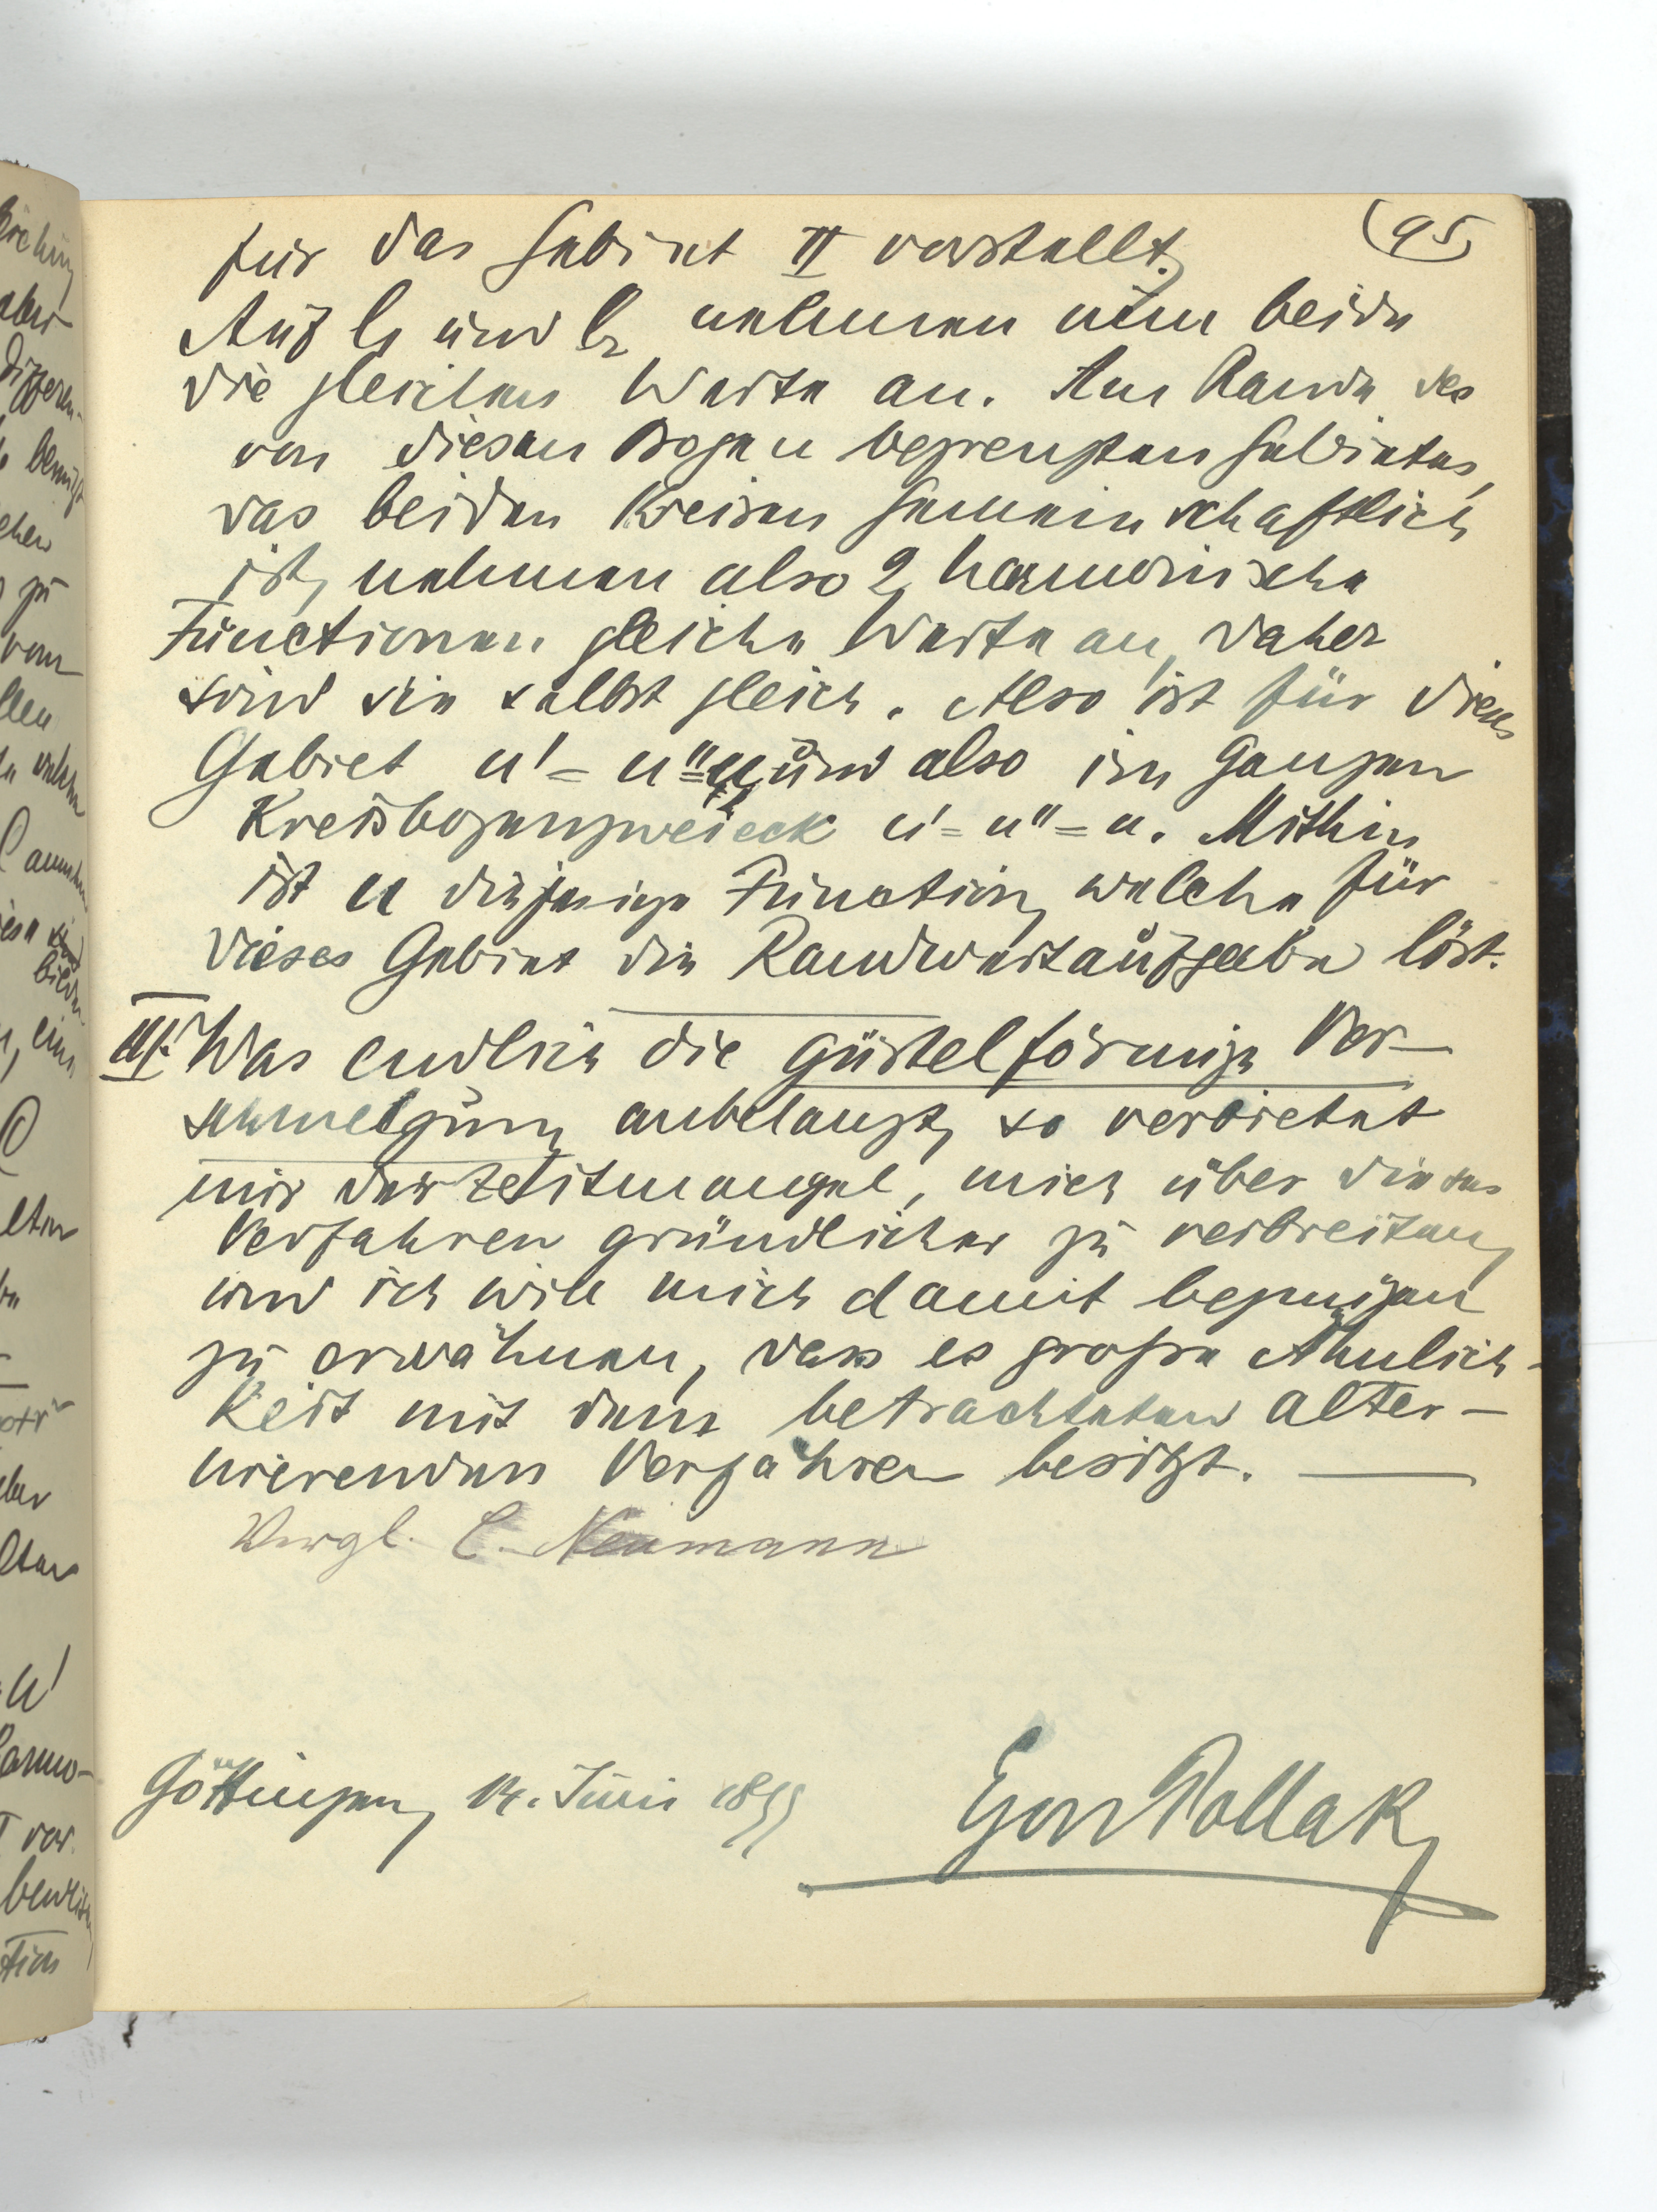 (95)
für das Gebiet II vorstellt.
Auf l₁ und l₂ nehmen nun beide
die gleichen Werte an. Am Rande des
von diesen Bogen begrenzten Gebietes,
das beiden Kreisen gemeinschaftlich
ist, nehmen also 2 harmonische
Functionen gleiche Werte an, daher
sind sie selbst gleich. Also ist für dieses
Gebiet u' = u" = u und also im ganzen
Kreisbogenzweieck u' = u" = u. Mithin
ist u diejenige Function, welche für
dieses Gebiet die Randwertaufgabe löst.
III. Was endlich die gürtelförmige Ver-
schmelzung anbelangt, so verbietet
mir der Zeitmangel, mich über dieses
Verfahren gründlicher zu verbreiten,
und ich will mich damit begnügen
zu erwähnen, dass es große Ähnlich-
keit mit dem betrachteten alter-
nierenden Verfahren besitzt.
Vergl. C. Neumann
Göttingen, 14. Juni 1899
Egon Pollak